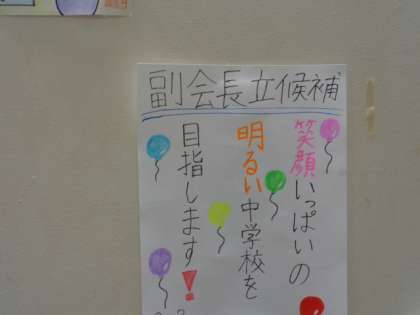 副会長立候補
笑顔いっぱいの
明るい中学校を
目指します!